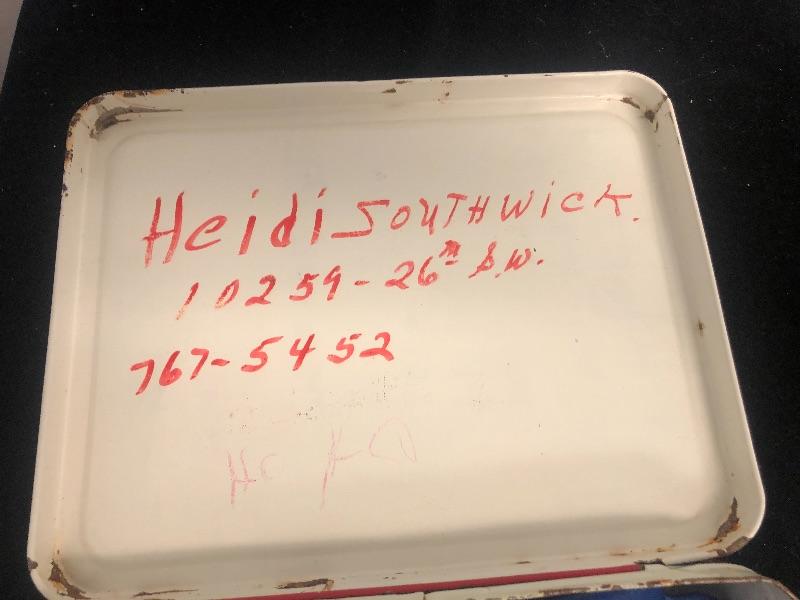 Heidi SOUTHWICK.
10259-26th S.W.
767-5452